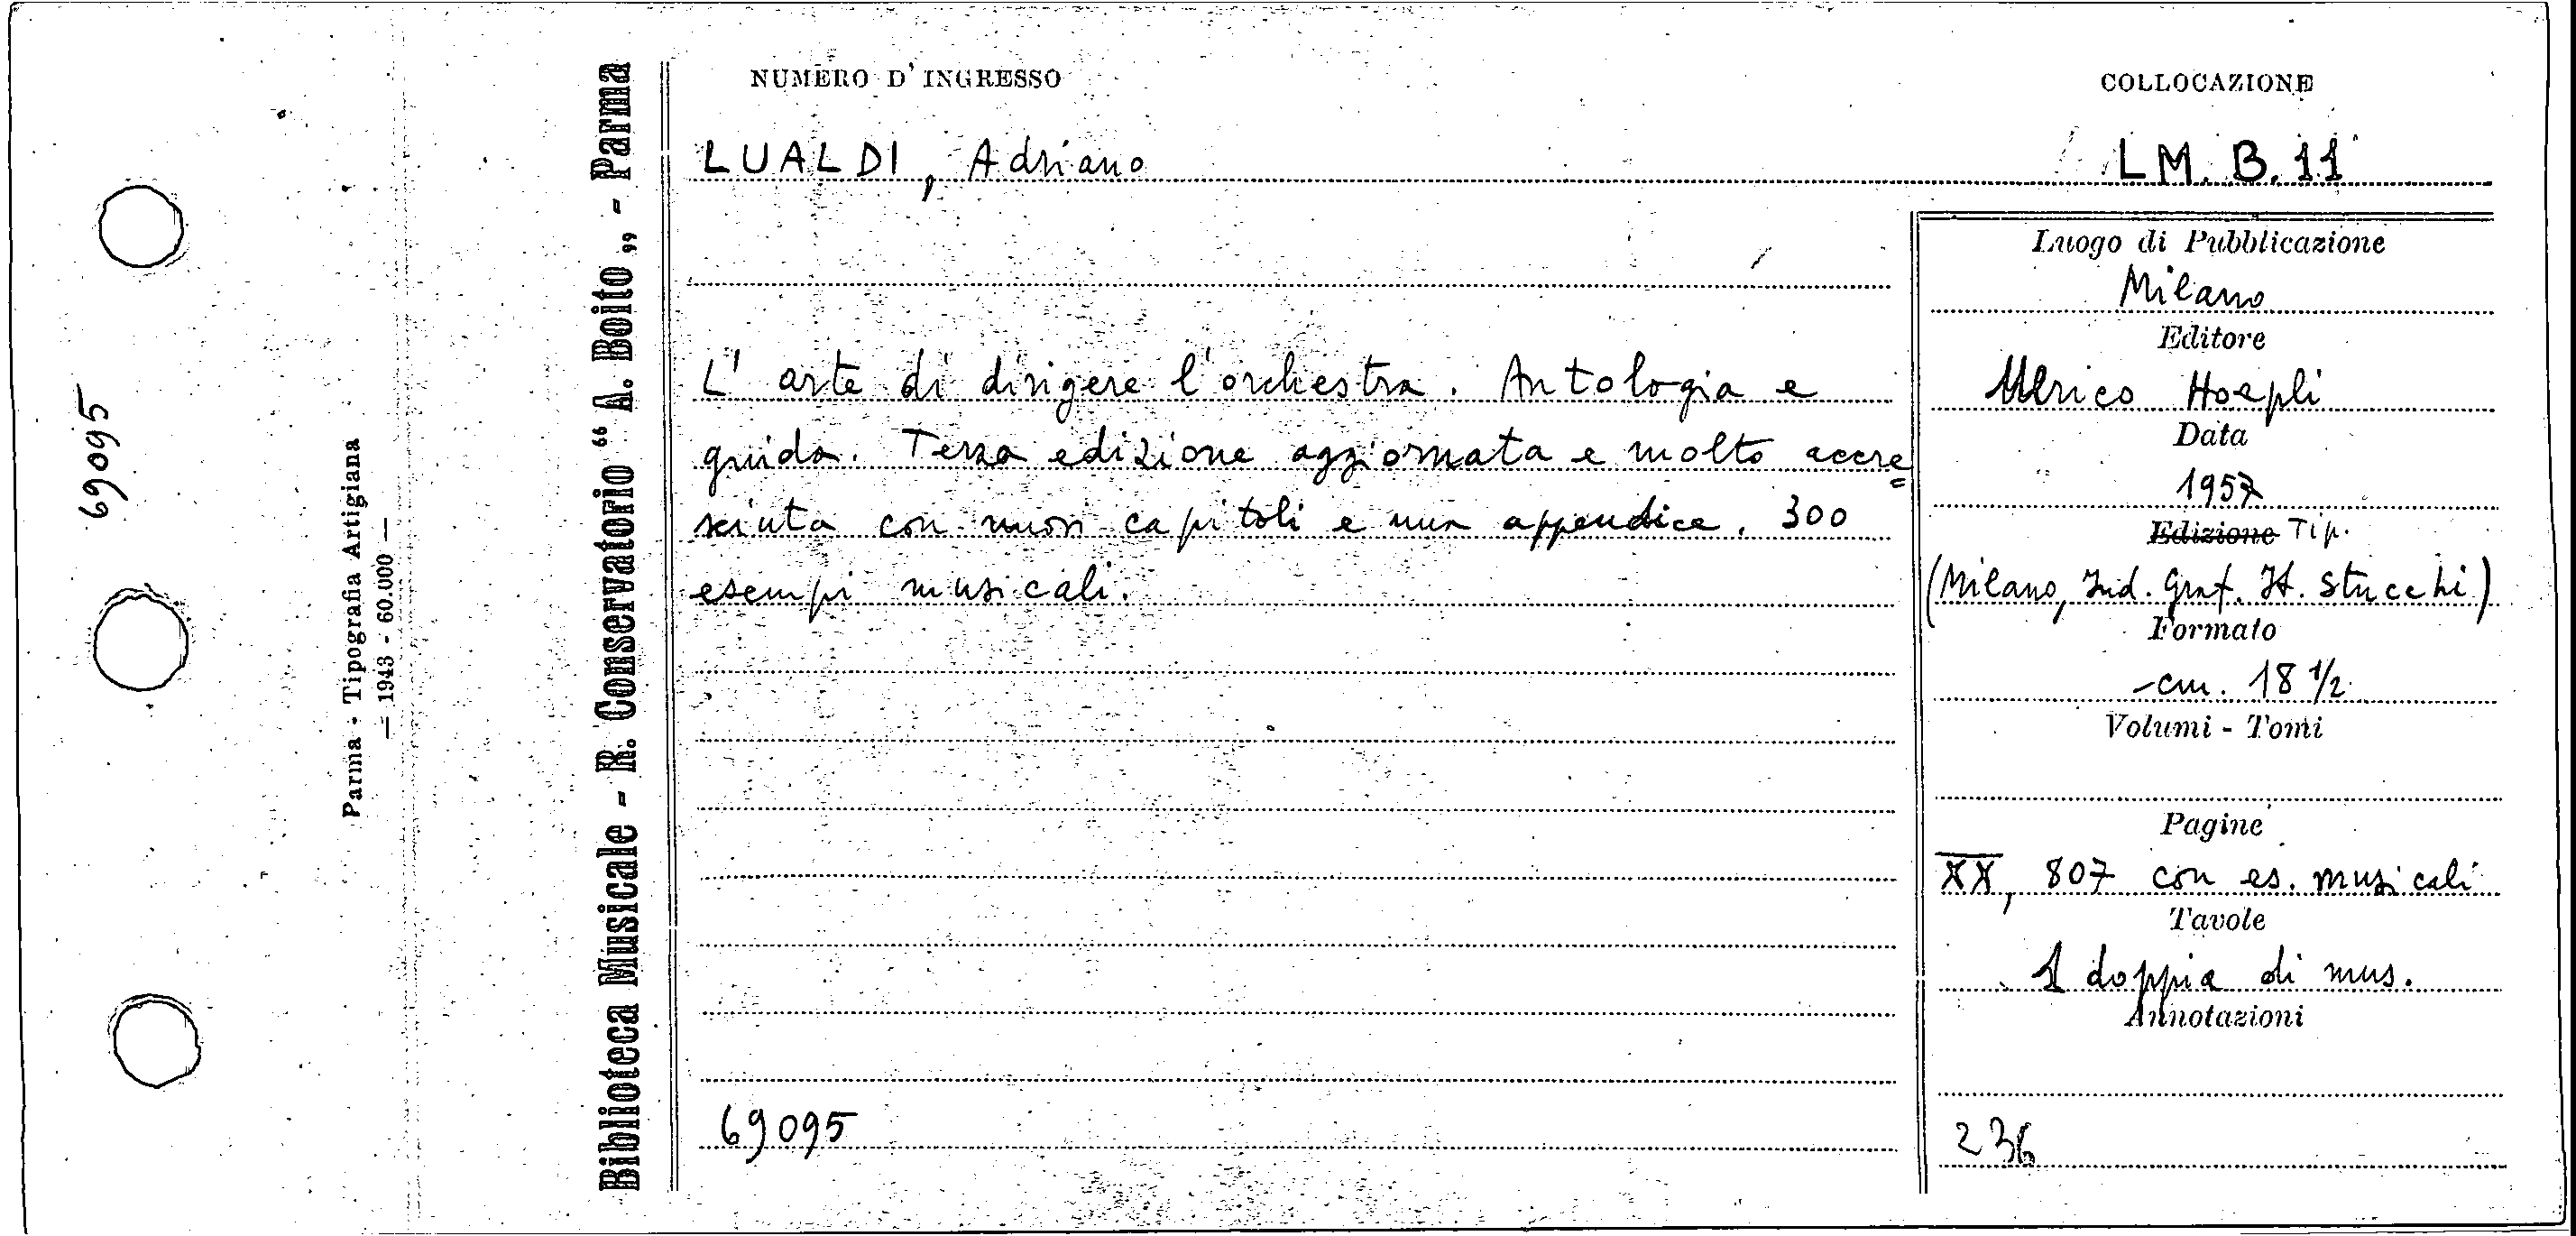 69095
Parma - Tipografia Artigiana
— 1943 - 60.000 —
Biblioteca Musicale - R. Conservatorio “ A. Boito „ - Parma
NUMERO D' INGRESSO
COLLOCAZIONE
LUALDI, Adriano
LM. B. 11
L' arte di dirigere l'orchestra. Antologia e
guida. Terza edizione aggiornata e molto accre=
sciuta con nuovi capitoli e una appendice. 300
esempi musicali.
69095
Luogo di Pubblicazione
Milano
Editore
Ulrico Hoepli
Data
1957
Edizione Tip.
(Milano, Ind. Graf. It. Stucchi)
Formato
cm. 18 1/2
Volumi - Tomi
Pagine
XX, 807 con es. musicali
Tavole
1 doppia di mus.
Annotazioni
236